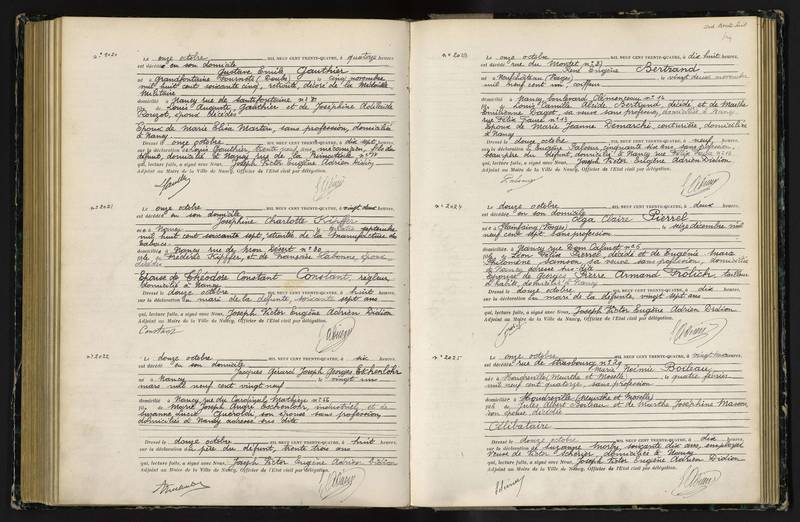 n° 2020
Le onze octobre MIL NEUF CENT TRENTE-QUATRE, à quatorze heures,
est décédé en son domicile
Gustave Emile Gauthier
né à Grandfontaine (Doubs) le cinq novembre
mil huit cent soixante cinq, retraité, décoré de la Médaille
Militaire
domicilié à Nancy rue de
fils de Louis Auguste Gauthier et de Joséphine Adélaïde
époux décédés
Epoux de Marie Elisa Martin, sans profession, domiciliée
à Nancy
Dressé le onze octobre MIL NEUF CENT TRENTE-QUATRE, à dix sept heures,
sur la déclaration de Louis Gauthier, trente neuf ans, mécanicien, fils du
défunt, domicilié à Nancy rue de la
qui, lecture faite, a signé avec Nous, Joseph Victor Eugène Adrien Didion
Adjoint au Maire de la Ville de Nancy, Officier de l'Etat civil par délégation.
n° 2021
Le onze octobre MIL NEUF CENT TRENTE-QUATRE, à vingt deux heures,
est décédée en son domicile
Joséphine Charlotte Kipffer
née à Nancy le septembre
mil huit cent soixante sept, retraitée de la manufacture de
tabacs
domiciliée à Nancy rue de
fille de Frédéric Kipffer, et de Françoise époux
décédés
Epouse de Théodore Constant Constant, régleur,
domicilié à Nancy
Dressé le douze octobre MIL NEUF CENT TRENTE-QUATRE, à huit heures,
sur la déclaration du mari de la défunte, soixante sept ans
qui, lecture faite, a signé avec Nous, Joseph Victor Eugène Adrien Didion
Adjoint au Maire de la Ville de Nancy, Officier de l'Etat civil par délégation.
Constant
n° 2022
Le douze octobre MIL NEUF CENT TRENTE-QUATRE, à six heures,
est décédé en son domicile
Jacques Gérard Joseph Georges Eschenlohr
né à Nancy le vingt un
mars mil neuf cent vingt neuf
domicilié à Nancy rue du Cardinal Mathieu n°
fils de Joseph André Eschenlohr, industriel et de
Suzanne Marie son épouse sans profession,
domiciliés à Nancy adresse sus dite
Dressé le douze octobre MIL NEUF CENT TRENTE-QUATRE, à huit heures,
sur la déclaration du père du défunt, trente trois ans
qui, lecture faite, a signé avec Nous, Joseph Victor Eugène Adrien Didion
Adjoint au Maire de la Ville de Nancy, Officier de l'Etat civil par délégation.
n° 2023
Le onze octobre MIL NEUF CENT TRENTE-QUATRE, à dix huit heures,
est décédé rue du Montet n°
René Eugène Bertrand
né à Neufchâteau (Vosges) le vingt deux novembre
mil neuf cent un, coiffeur
domicilié à Nancy, boulevard Clémenceau n°
fils de Louis Camille Bertrand, décédé et de Marthe
Emilienne sa veuve sans profession, domiciliée à Nancy
rue Félix Faure n° 13
Epoux de Marie Jeanne Demarché, couturière, domiciliée
à Nancy
Dressé le douze octobre MIL NEUF CENT TRENTE-QUATRE, à neuf heures,
sur la déclaration de Eugène cinquante six ans, sans profession,
beau père du défunt, domicilié à Nancy rue Félix Faure n°
qui, lecture faite, a signé avec Nous, Joseph Victor Eugène Adrien Didion
Adjoint au Maire de la Ville de Nancy, Officier de l'Etat civil par délégation.
n° 2024
Le douze octobre MIL NEUF CENT TRENTE-QUATRE, à deux heures,
est décédée en son domicile
Olga Claire Pierrel
née à Plainfaing (Vosges) le seize décembre mil
neuf cent sept sans profession
domiciliée à Nancy rue Dom Calmet n° 6
fille de Léon Pierrel, décédé et de Eugénie Maria
Philomène sa veuve sans profession, domiciliée
à Nancy adresse sus dite
Epouse de Georges Pierre Armand Frölich, tailleur
d'habits, domicilié à Nancy
Dressé le douze octobre MIL NEUF CENT TRENTE-QUATRE, à dix heures,
sur la déclaration du mari de la défunte, vingt sept ans
qui, lecture faite, a signé avec Nous, Joseph Victor Eugène Adrien Didion
Adjoint au Maire de la Ville de Nancy, Officier de l'Etat civil par délégation.
n° 2025
Le onze octobre MIL NEUF CENT TRENTE-QUATRE, à vingt heures,
est décédée rue de Strasbourg n°
Marie Noémie Boileau
née à Houdreville (Meurthe et Moselle) le quatre février
mil neuf cent quatorze, sans profession
domiciliée à Houdreville (Meurthe et Moselle)
fille de Jules Albert Boileau et de Marthe Joséphine Masson,
son épouse décédée
Célibataire
Dressé le douze octobre MIL NEUF CENT TRENTE-QUATRE, à dix heures,
sur la déclaration de Suzanne soixante dix ans, employée
veuve de Victor domiciliée à Nancy
qui, lecture faite, a signé avec Nous, Joseph Victor Eugène Adrien Didion
Adjoint au Maire de la Ville de Nancy, Officier de l'Etat civil par délégation.